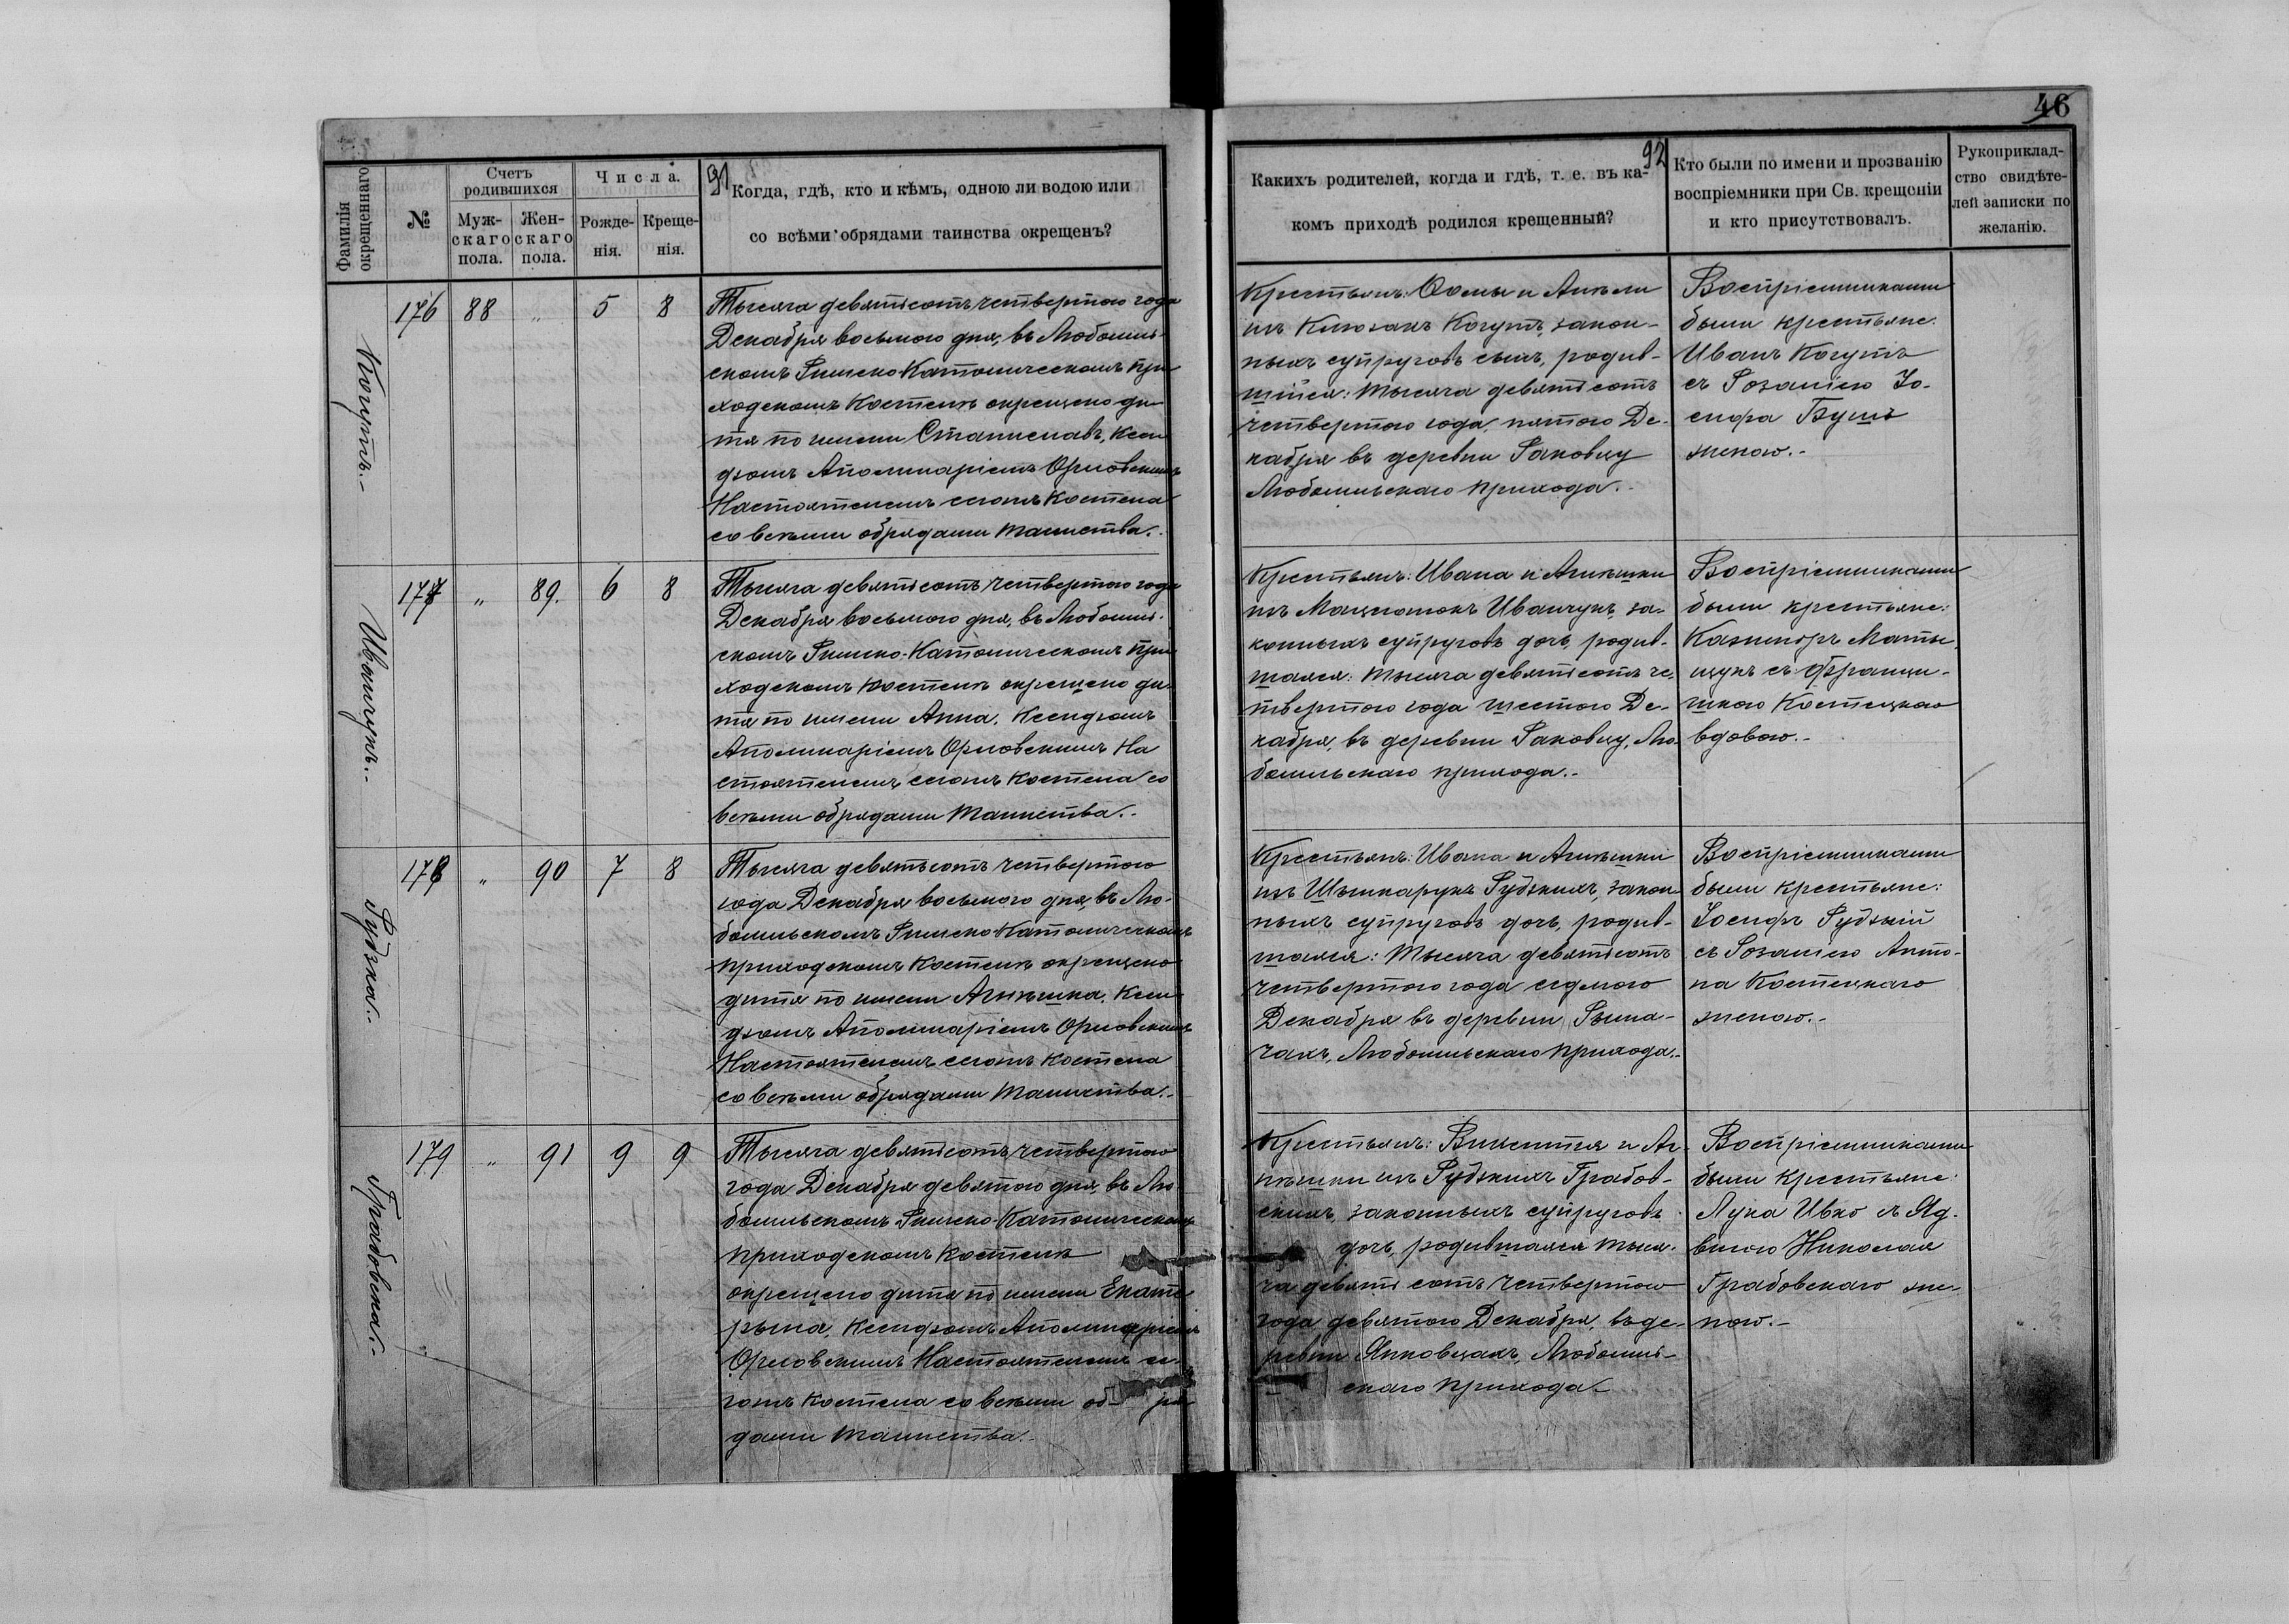 46
91
92
Фамилія окрещеннаго
№
Счетъ родившихся
Муж-скаго пола.
Жен-скаго пола.
Числа.
Рожде-нія.
Креще-нія.
Когда, гдѣ, кто и кѣмъ, одною ли водою или
со всѣми обрядами таинства окрещенъ?
Какихъ родителей, когда и гдѣ, т. е. въ ка-
комъ приходѣ родился крещенный?
Кто были по имени и прозванію
воспріемники при Св. крещеніи
и кто присутствовалъ.
Рукоприклад-
ство свидѣте-
лей записки по
желанію.
Когутъ.-
176 88 „ 5 8
Тысяча девятьсотъ четвертого года
Декабря восьмого дня, въ Любомль-
скомъ Римско-Католическомъ при-
ходскомъ Костелѣ окрещено ди-
тя по имени Станиславъ, Ксен-
дзомъ Аполинаріемъ Орловскимъ
Настоятелемъ сегожъ Костела
со всѣми обрядами таинства.-
Крестьянъ: Ѳомы и Анѣли
изъ Клюзакъ Когутъ, закон-
ныхъ супруговъ сынъ, родив-
шійся: тысяча девятьсотъ
четвертого года, пятого Де-
кабря въ деревни Раковцу
Любомльскаго прихода.-
Воспріемниками
были крестьяне:
Иванъ Когутъ
съ Розаліею Іо-
сифа Бушъ
женою.-
Иванчукъ.-
177 „ 89. 6 8
Тысяча девятьсотъ четвертого года
Декабря восьмого дня, въ Любомль-
скомъ Римско-Католическомъ при-
ходскомъ Костелѣ окрещено ди-
тя по имени Анна, Ксендзомъ
Аполинаріемъ Орловскимъ На
стоятелемъ сегожъ Костела со
всѣми обрядами таинства.-
Крестьянъ: Ивана и Агнѣшки
изъ Мацюкокъ Иванчукъ, за-
конныхъ супруговъ дочь, родив-
шаяся: тысяча девятьсотъ че-
твертого года шестого Де-
кабря, въ деревни Раковцу, Лю-
бомльскаго прихода.-
Воспріемниками
были крестьяне:
Казиміръ Маты-
щукъ съ Францы-
шкою Костецкою
вдовою.-
Рудзка.-
178 „ 90 7 8
Тысяча девятьсотъ четвертого
года Декабря восьмого дня, въ Лю-
бомльскомъ Римско-Католическомъ
приходскомъ Костелѣ окрещено
дитя по имени Агнѣшка, Ксен-
дзомъ Аполинаріемъ Орловскимъ
Настоятелемъ сегожъ Костела
со всѣми обрядами таинства.-
Крестьянъ: Ивана и Агнѣшки
изъ Шынкарукъ Рудзкихъ, закон-
ныхъ супруговъ дочь, родив-
шаяся: тысяча девятьсотъ
четвертого года седмого
Декабря въ деревни Рыма-
чахъ, Любомльскаго прихода.-
Воспріемниками
были крестьяне:
Іосифъ Рудзкій
съ Розаліею Анто-
на Костецкаго
женою.-
Грабовска.-
179 „ 91 9 9
Тысяча девятьсотъ четвертого
года Декабря девятого дня, въ Лю-
бомльскомъ Римско-Католическомъ
приходскомъ Костелѣ
окрещено дитя по имени Екате-
рына, Ксендзомъ Аполинаріемъ
Орловскимъ Настоятелемъ се-
гожъ Костела со всѣми об- ря-
дами таинства.-
Крестьянъ: Викентія и Аг-
нѣшки изъ Рудзкихъ Грабов-
скихъ, законныхъ супруговъ
дочь, родившаяся тыся-
ча девять сотъ четвертого
года девятого Декабря, въ де-
ревни Янковцахъ, Любомль-
скаго прихода.-
Воспріемниками
были крестьяне:
Лука Ивко съ Яд-
вигою Николая
Грабовскаго же-
ною.-